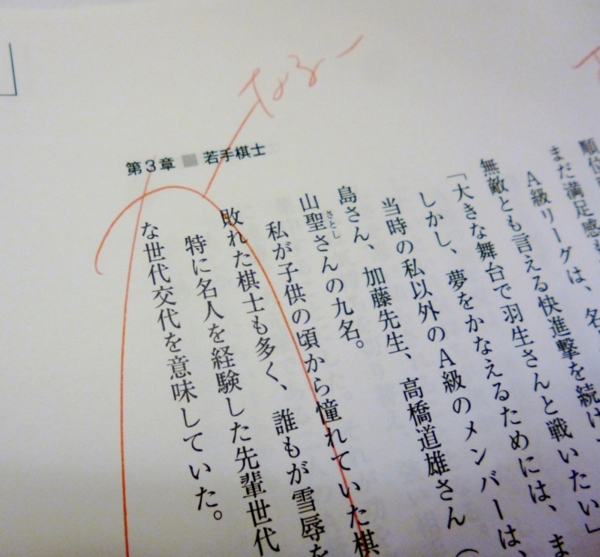 第3章 ■ 若手棋士
順位
まだ満足感も
A級リーグは、名
無敵とも言える快進撃を続け
「大きな舞台で羽生さんと戦いたい」
しかし、夢をかなえるためには、ま
当時の私以外のA級のメンバーは
島さん、加藤先生、高橋道雄さん（
山聖さんの九名。
さとし
私が子供の頃から憧れていた棋
敗れた棋士も多く、誰もが雪辱を
特に名人を経験した先輩世代
な世代交代を意味していた。